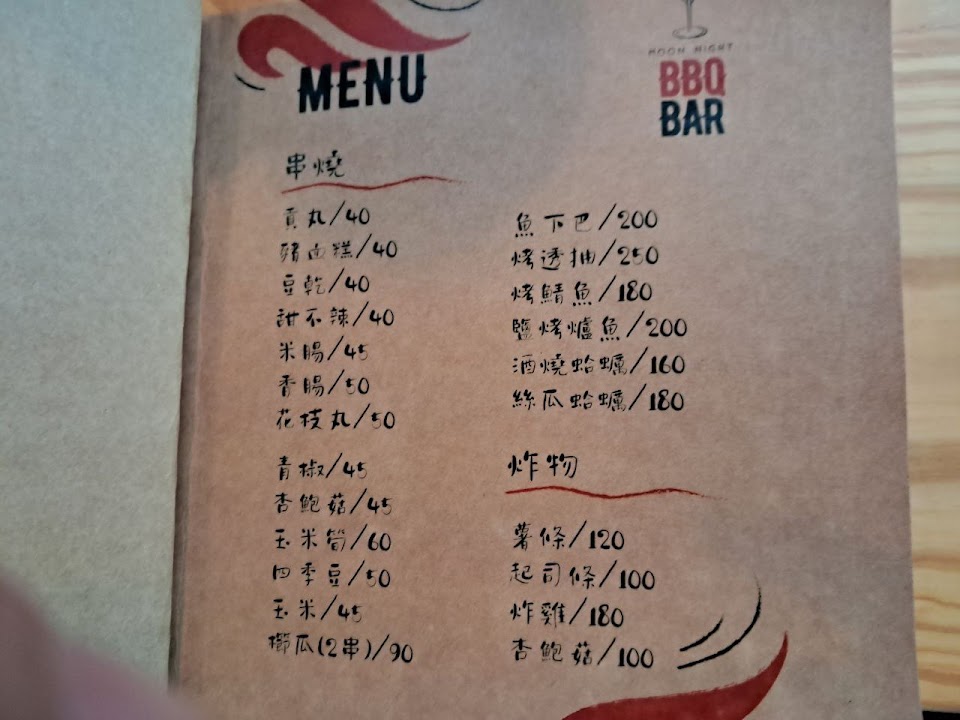 MENU
MOON NIGHT
BBQ
BAR
串燒
貢丸/40
豬血糕/40
豆乾/40
甜不辣/40
米腸/45
香腸/50
花枝丸/50
青椒/45
杏鮑菇/45
玉米筍/60
四季豆/50
玉米/45
櫛瓜(2串)/90
魚下巴/200
烤透抽/250
烤鯖魚/180
鹽烤爐魚/200
酒燒蛤蠣/160
絲瓜蛤蠣/180
炸物
薯條/120
起司條/100
炸雞/180
杏鮑菇/100